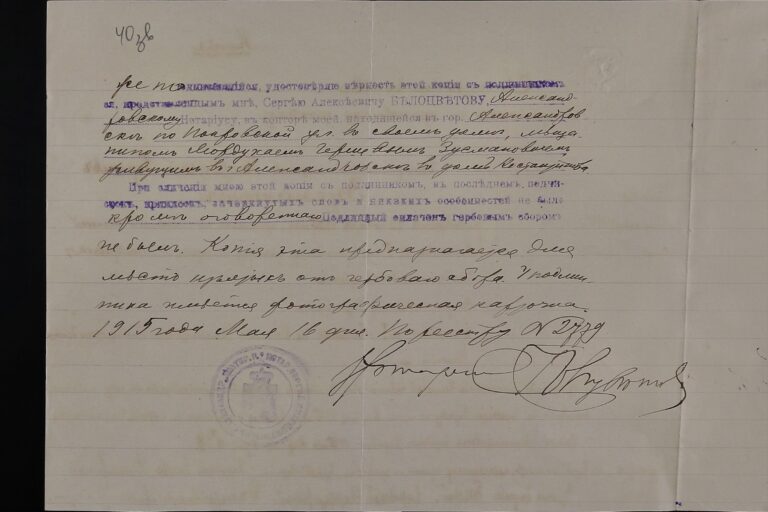 40 об
удостовѣряю вѣрность этой копіи съ подлинникомъ
ея, представленнымъ мнѣ, Сергѣю Алексѣевичу БѢЛОЦВѢТОВУ, Александ-
ровскому Нотаріусу, въ конторѣ моей, находящейся въ гор. Александров
скѣ по Покровской ул. въ своемъ домѣ, мѣща
ниномъ Мовдухаемъ Зусмановичемъ
живущимъ въ г. Александровскѣ въ домѣ
При сличеніи мною этой копіи съ подлинникомъ, въ послѣднемъ подчи-
стокъ, приписокъ, зачеркнутыхъ словъ и никакихъ особенностей не было
кромѣ оговореннаго Подлинный оплаченъ гербовымъ сборомъ
не былъ. Копія эта предназначается для
мѣстъ изъятыхъ отъ гербоваго сбора. У подлин
ника имѣется фотографическая карточка.
1915 года Мая 16 дня. По реестру N 2779
Нотаріусъ